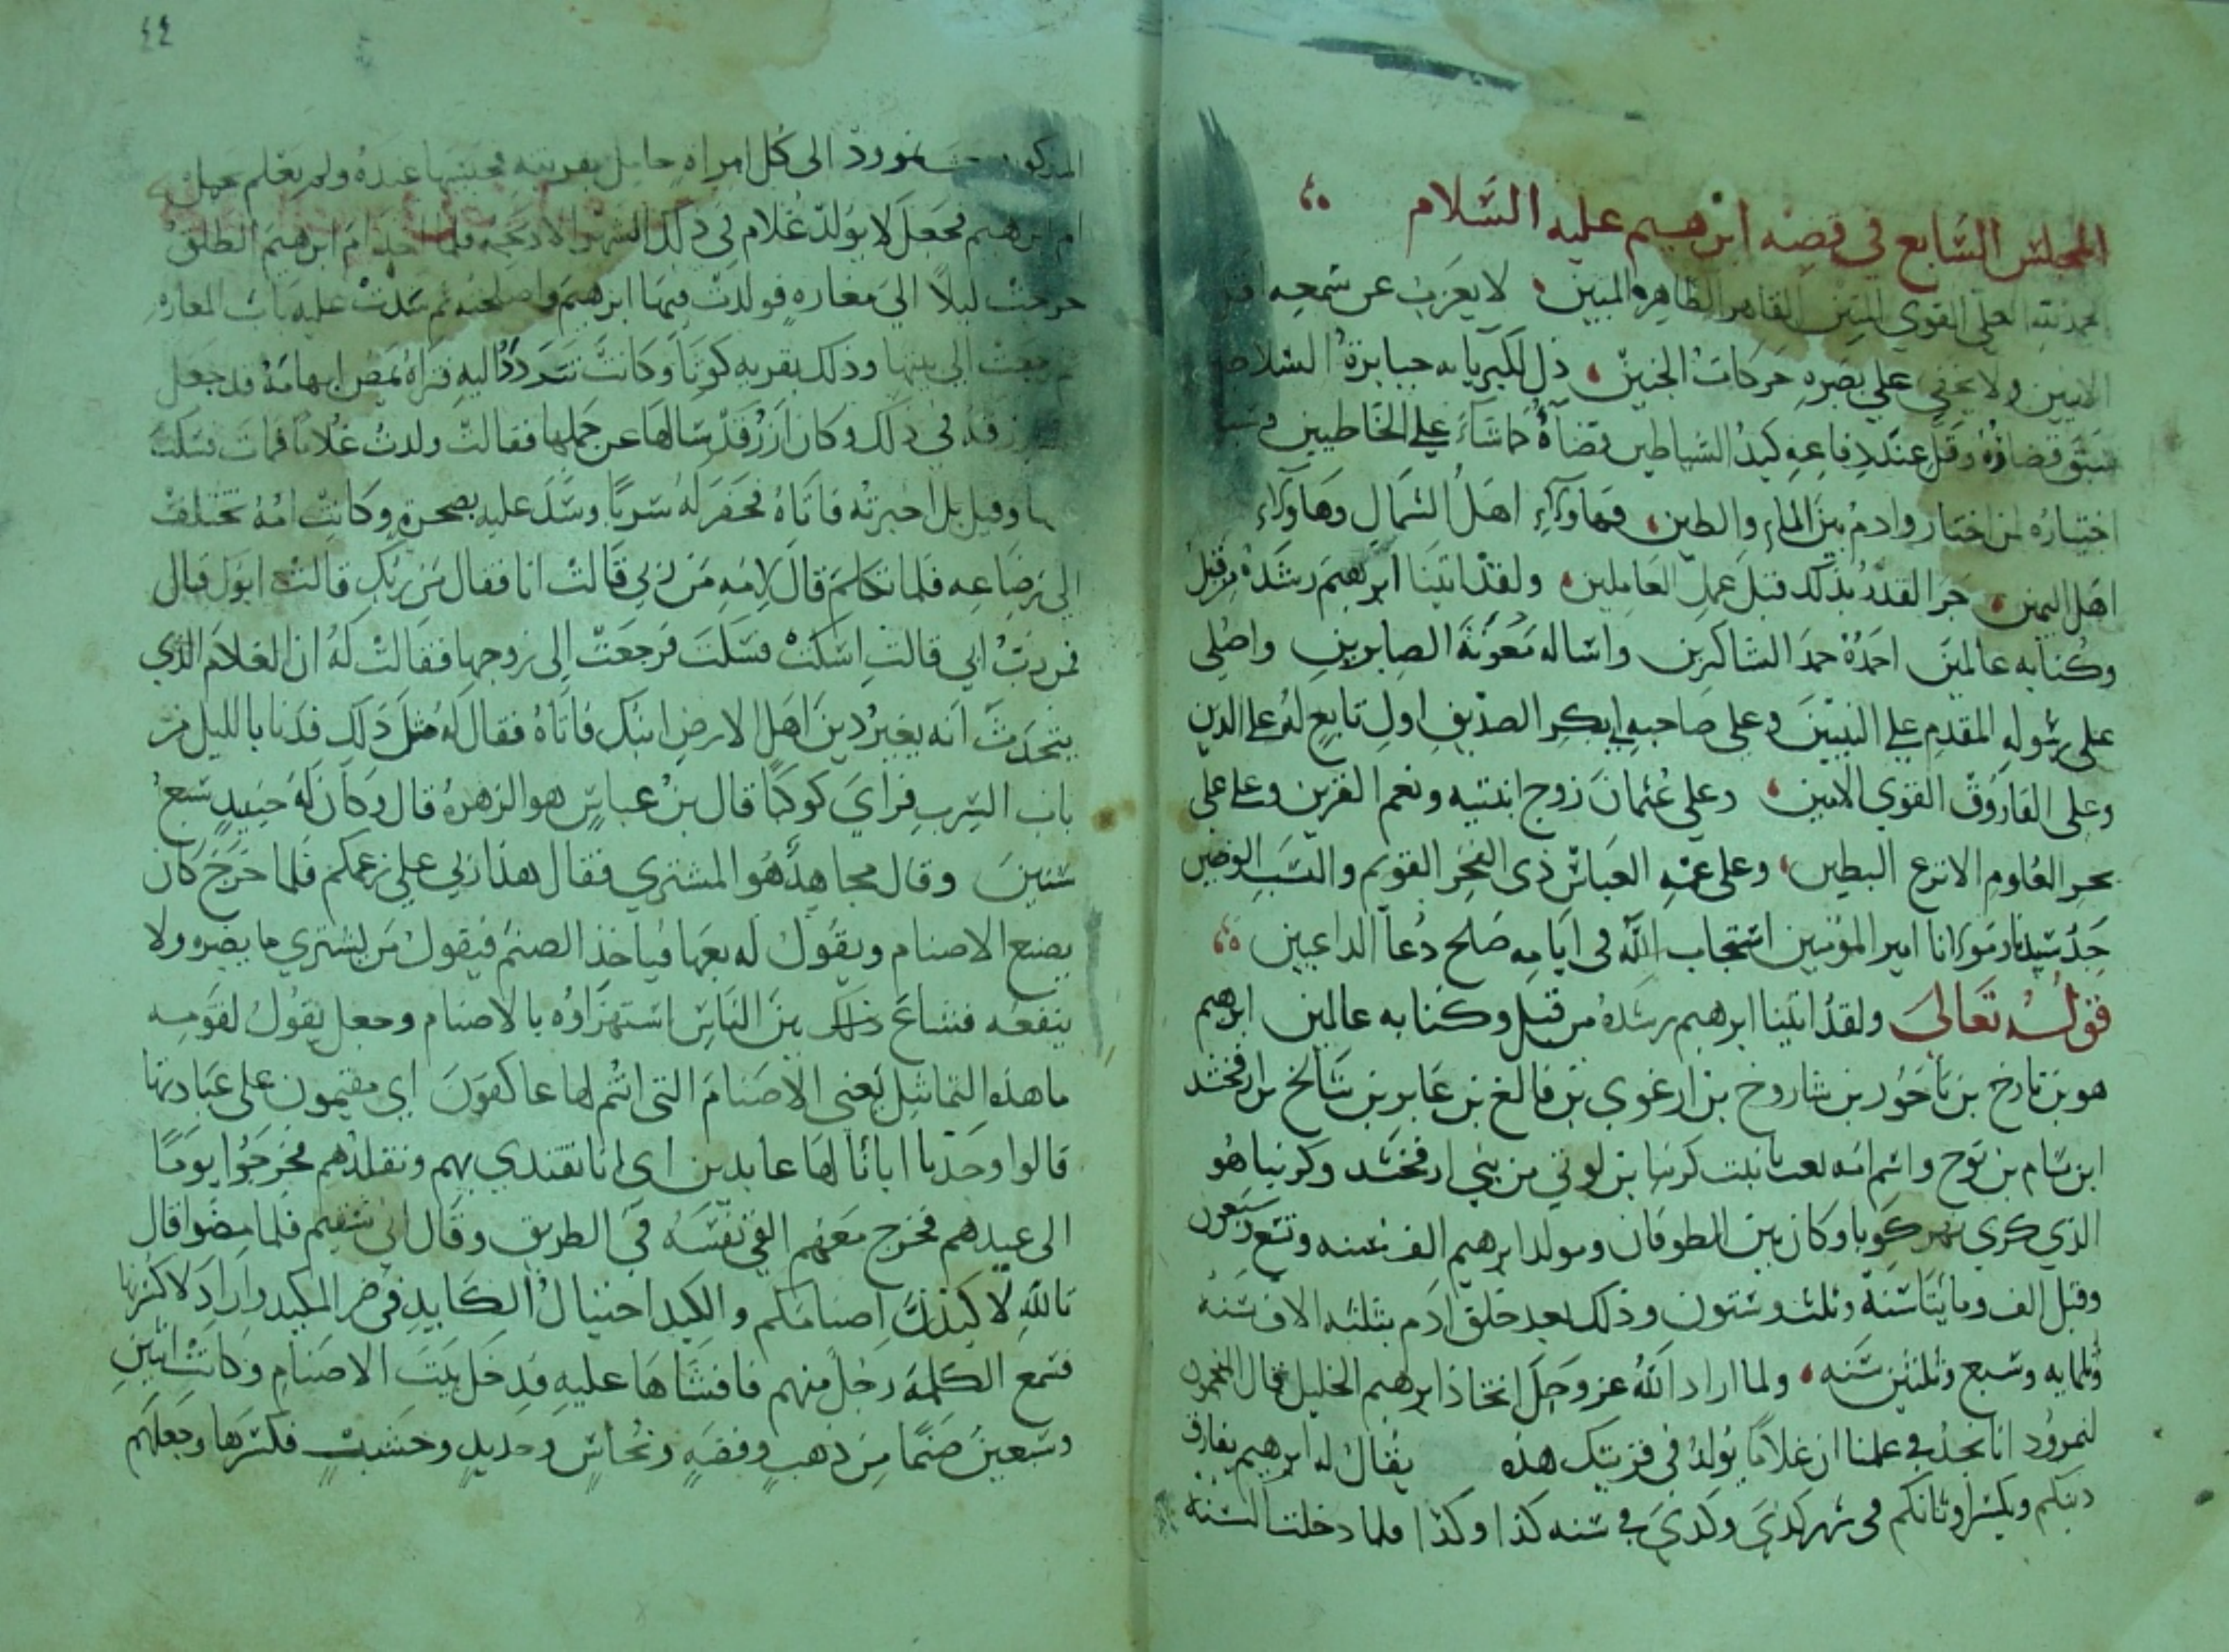 المجلس السابع في قصه ابرهيم عليه السلام
الحمد لله العلي القوي المتين القاهر الظاهر المبين لا يعزب عن سمعه اقل
الانين ولا يخفي علي بصره حركات الجنين ذل لكبريايه جبابرة السلاطين
سبق قضاؤه وقل عند دفاعه كيد الشياطين قضاؤه كما شاء علي الخاطيين وسبق
اختياره لمن اختار وادم بين الماء والطين فهاولاء اهل الشمال وهاولاء
اهل اليمين جر القدر بذلك قبل عمل العاملين ولقد اتينا ابرهيم رشده من قبل
وكنا به عالمين احمده حمد الشاكرين واساله معونة الصابرين واصلي
على رسوله المقدم علي النبيين وعلي صاحبه ابي بكر الصديق اول تابع له علي الدين
وعلى الفاروق القوي الامين وعلي عثمان زوج ابنتيه ونعم القرين وعلي علي
بحر العلوم الانزع البطين وعلي عمه العباس ذي الفخر القويم والنسب الوضين
جد سيدنا ومولانا امير المؤمنين استجاب الله في ايامه صلح دعا الداعيين
قوله تعالى ولقد اتينا ابرهيم رشده من قبل وكنا به عالمين ابرهيم
هو بن تارخ بن ناحور بن شاروخ بن ارغوي بن فالغ بن عابر بن شالخ بن ارفخشد
ابن سام بن نوح واسم امه بنت كرنبا بن لوني من بني ارفخشد وكرنبا هو
الذي كري نهر كوبا وكان بين الطوفان ومولد ابرهيم الف سنه وتسع وسبعون
وقيل الف ومايتا سنة وثلث وستون وذلك بعد خلق ادم بثلثه الاف سنة
وثلثمايه وسبع وثلثين سنه ولما اراد الله عز وجل اتخاذ ابرهيم الخليل قال المنجمون
لنمرود انا نجد في علمنا ان غلاما يولد في قريتك هذه يقال له ابرهيم يفارق
دينكم ويكسر اوثانكم في شهر كذي وكذي في سنه كذا وكذا فلما دخلت السنة
٤٤
المذكورة نمرود الى كل امراه حامل بقريته فحبسها عنده ولم يعلم بحمل
ام ابرهيم فجعل لا يولد غلام في ذلك الشهر الا ذبحه فلما اخذ ام ابرهيم الطلق
خرجت ليلا الي مغاره فولدت فيها ابرهيم واصلحته ثم سدت عليه باب المغاره
ثم رجعت الى بيتها وذلك بقريه كوثا وكانت تتردد اليه فتراه يمص ابهامه قد جعل
رزقه في ذلك وكان ازر قد سالها عن حملها فقالت ولدت غلاما فمات فسكت
عنها وقيل بل اخبرته فاتاه فحفر له سربا وسد عليه بصخرة وكانت امه تختلف
الي رضاعه فلما تكلم قال لامه من ربي قالت انا فقال من ربك قالت ابوك قال
فمن رب ابي قالت اسكت فسكت فرجعت إلى زوجها فقالت له ان الغلام الذي
يتحدث انه يغير دين اهل الارض ابنك فاتاه فقال له مثل ذلك فدنا بالليل من
باب السرب فراي كوكبا قال بن عباس هو الزهره قال وكان له حينيد سبع
سنين وقال مجاهد هو المشتري فقال هذا ربي علي زعمكم فلما خرج كان
يصنع الاصنام ويقول له بعها فياخذ الصنم فيقول من يشتري ما يضره ولا
ينفعه فشاع ذلك بين الناس استهزاوه بالاصنام وجعل يقول لقومه
ما هذه التماثيل يعني الاصنام التي انتم لها عاكفون اي مقيمون على عبادتها
قالوا وجدنا ابانا لها عابدين اي انا نقتدي بهم ونقلدهم فخرجوا يوما
الى عيدهم فخرج معهم القى نفسه في الطريق وقال اني سقيم فلما مضوا قال
تالله لاكيدن اصنامكم والكيد احتيال الكايد في ضر المكيد واراد لاكسرنها
فسمع الكلمة رجل منهم فافشاها عليه فدخل بيت الاصنام وكانت اثنين
وسبعين صنما من ذهب وفضة ونحاس وحديد وخشب فكسرها وجعلهم